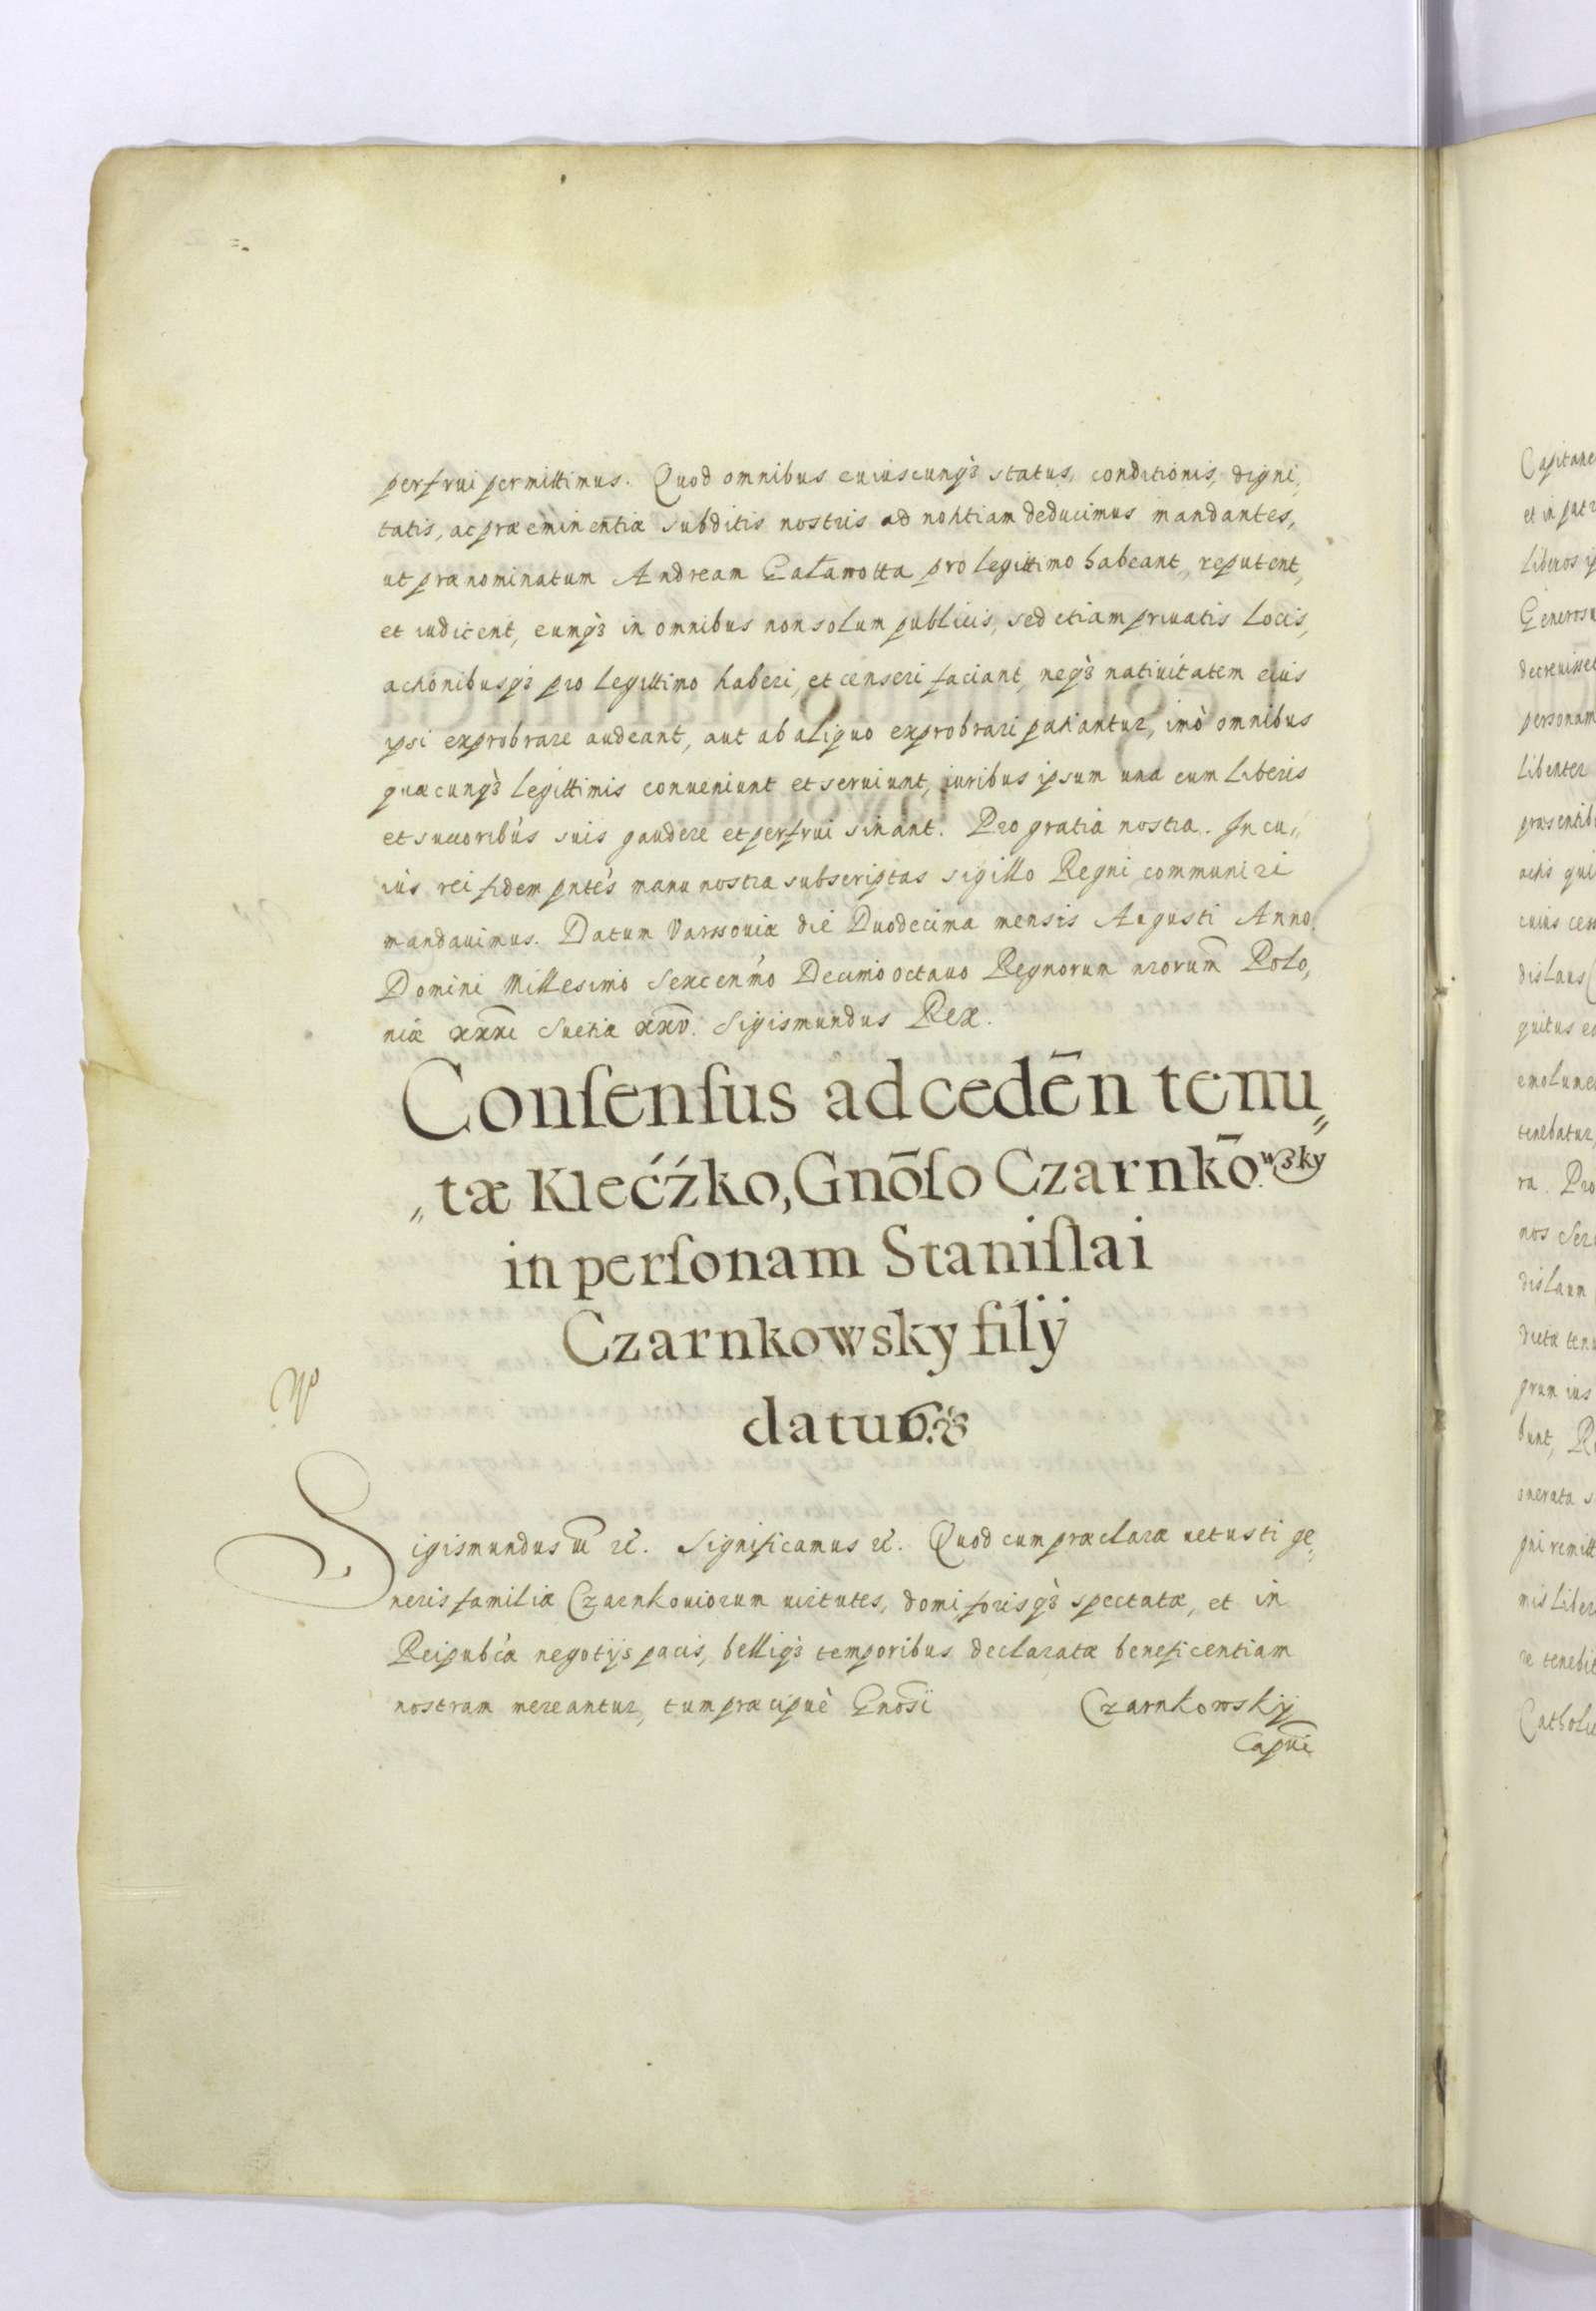 perfrui permittimus. Quod omnibus cuiuscunqȝ status, conditionis, digni,
tatis, ac præeminentiæ subditis nostris ad notitiam deducimus mandantes,
ut prænominatum Andream Galamotta pro legittimo habeant, reputent,
et iudicent, eumqȝ in omnibus non solum publicis, sed etiam priuatis locis,
actionibusqȝ pro legittimo haberi, et censeri faciant, neqȝ natiuitatem eius
ipsi exprobrare audeant, aut ab aliquo exprobrari patiantur, imò omnibus
quæcunqȝ legittimis conueniunt et seruiunt, iuribus ipsum una cum liberis
et succoribus suis gaudere et perfrui sinant. Pro gratia nostra. In cu„
ius rei fidem pntes manu nostra subscriptas sigillo Regni communiri
mandauimus. Datum Varsouiæ die Duodecima mensis Augusti Anno
Domini Millesimo Sexcenmo Decimo octauo Regnorum nrorum Polo,
niæ xxxi Suetiæ xxv. Sigismundus Rex.
Conſenſus ad cedēn tenu„
„tæ Klećźko, Gnōſo Czarnkōwsky
in perſonam Staniſlai
Czarnkowsky filÿ
datur.
Sigismundus III etc. Significamus etc. Quod cum præclaræ uetusti ge,
neris familiæ Czarnkouiorum uirtutes, domi forisqȝ spectatæ, et in
Reipubcæ negotijs pacis, belliqȝ temporibus declaratæ beneficentiam
nostram mereantur, tum præcipuè Gnosi Czarnkowskij
Capnei
Capitane
et in patr
liberos
Generosu
decreuisset
personam
libenter
præsentib
actis qui
cuius
dislaus
quitus
emolume
tenebatur,
ra. Pro
nos Ser
dislaum
dictæ tenu
grum ius
bunt, R
onerata s
gni remitt
mis liber
re tenebit
Catholic